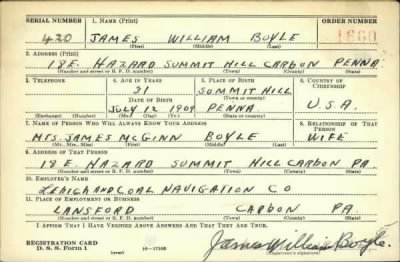 SERIAL NUMBER 1. NAME (Print) ORDER NUMBER
420 JAMES WILLIAM BOYLE 1860
(First) (Middle) (Last)
2. ADDRESS (Print)
18 E. HAZARD SUMMIT HILL CARBON PENNA
(Number and street or R. F. D. number) (Town) (County) (State)
3. TELEPHONE 4. AGE IN YEARS 5. PLACE OF BIRTH 6. COUNTRY OF CITIZENSHIP
31 SUMMIT HILL
DATE OF BIRTH (Town or county)
JULY 12 1909 PENNA U.S.A.
(Exchange) (Number) (Mo.) (Day) (Yr.) (State or country)
7. NAME OF PERSON WHO WILL ALWAYS KNOW YOUR ADDRESS 8. RELATIONSHIP OF THAT PERSON
MRS. JAMES MCGINN BOYLE WIFE
(Mr., Mrs., Miss) (First) (Middle) (Last)
9. ADDRESS OF THAT PERSON
18 E. HAZARD SUMMIT HILL CARBON PA.
(Number and street or R. F. D. number) (Town) (County) (State)
10. EMPLOYER'S NAME
LEHIGH AND COAL NAVIGATION CO
11. PLACE OF EMPLOYMENT OR BUSINESS
LANSFORD CARBON PA.
(Number and street or R. F. D. number) (Town) (County) (State)
I AFFIRM THAT I HAVE VERIFIED ABOVE ANSWERS AND THAT THEY ARE TRUE.
REGISTRATION CARD
D. S. S. Form 1 16—17105 James William Boyle.
(Registrant's signature)